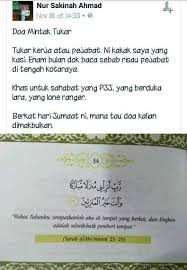 Nur Sakinah Ahmad
Nov 18 at 14:33
Doa Mintak Tukar
Tukar kerja atau pejabat. Ni kakak saya yang
kasi. Enam bulan dok baca sebab risau pejabat
di tengah kotaraya.
Khas untuk sahabat yang PJJ, yang berduka
lara, yang lone ranger.
Berkat hari Jumaat ni, mana tau doa kalian
dimakbulkan.
34
رَبِّ أَنزِلْنِي مُنزَلًا مُّبَارَكًا
وَأَنتَ خَيْرُ الْمُنزِلِينَ
"Wahai Tuhanku, tempatkanlah aku di tempat yang berkat, dan Engkau
adalah sebaik-baik pemberi tempat."
(Surah al-Mu'minun 23: 29)